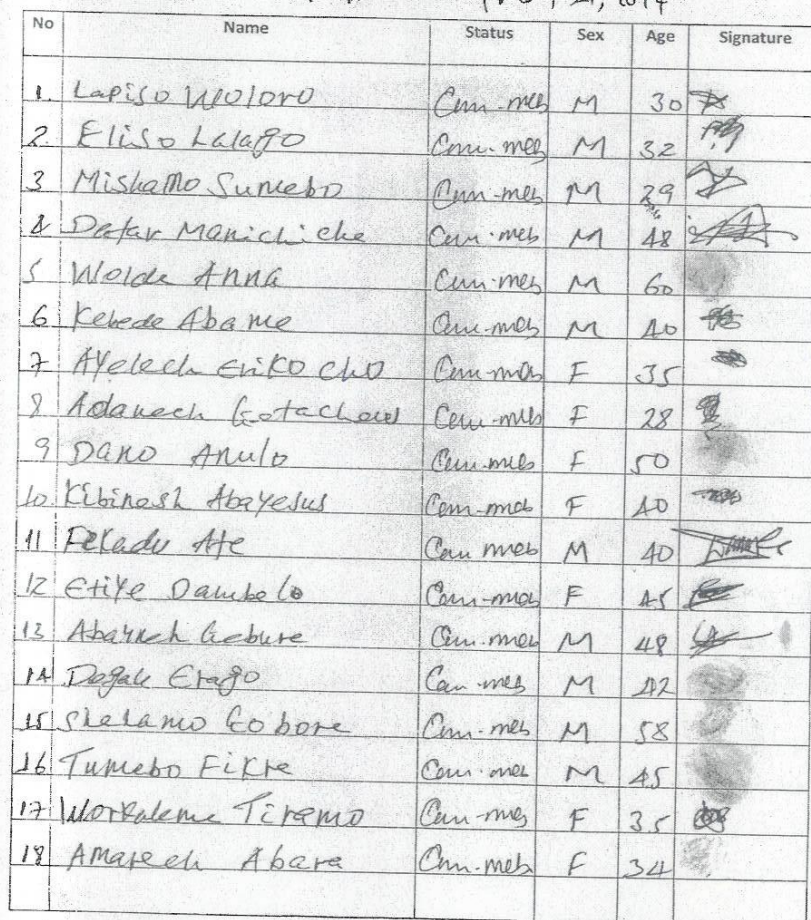 21, 2014
No Name Status Sex Age Signature
1. Lapiso Woloro Com-meb M 30
2. Eliso Lalago Com-meb M 32
3 Mishamo Sumebo Com-meb M 29
4 Datar Manichiche Com-meb M 48
5 Wolde Anna Com-meb M 60
6 Kebede Abame Com-meb M 40
7 Ayelech Erikocho Com-meb F 35
8 Adanech Getachew Com-meb F 28
9 Dano Anulo Com-meb F 50
10. Kibinesh Abayesus Com-meb F 40
11 Fekadu Ate Com meb M 40
12 Etiye Dambelo Com-meb F 45
13 Abayneh Gebure Com-meb M 48
14 Dogale Erago Com-meb M 42
15 Shelamo Gobore Com-meb M 58
16 Tumebo Fikre Com-meb M 45
17 Workaleme Tiremo Com-meb F 35
18 Amarech Abara Com-meb F 34